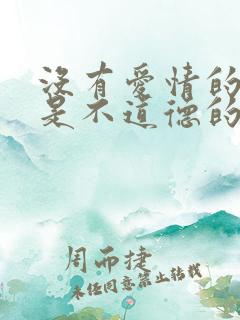 沒有愛情的
是不道德的
周而捷
未任同意禁止轉載